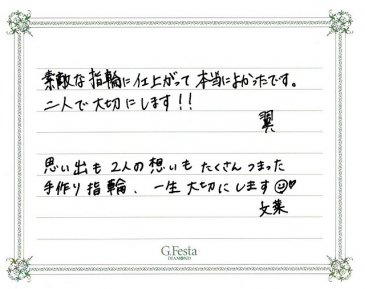 素敵な指輪に仕上がって本当によかったです。
二人で大切にします！！
翼
思い出も2人の想いもたくさんつまった
手作り指輪、一生大切にします☺♡
文葉
G.Festa
DIAMOND